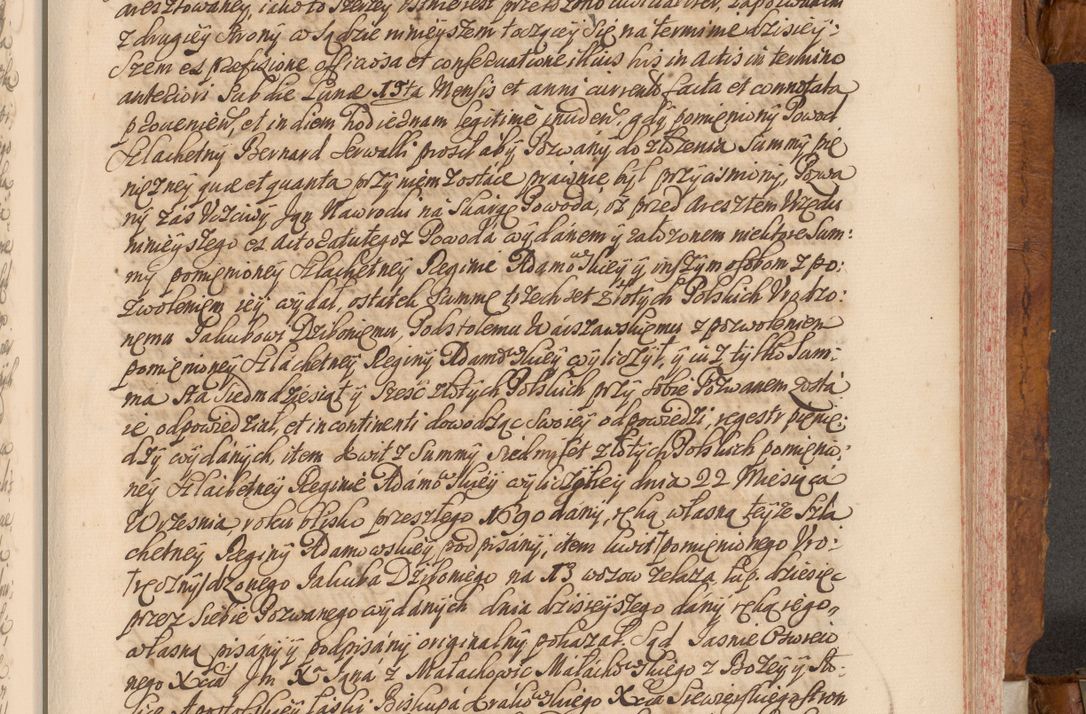 aresztowaney, iako to szerzey
z drugiey strony w Sądzie ninieyszem toczącey się na terminie dzisiey:
szem ex præfixione officiosa et conservatione illius his in actis in termino
anteriori sub die Lunæ 15ta Mensis et anni currentis facta et connotata
et in diem hodiernam legitime gdy pomieniony Powod
Szlachetny Bernard Serwalli prosił aby Pozwany do złożenia Summy pie
niężney quæ et quanta przy niem zostaie prawnie był przyciśniony, Pozwa
ny zaś Vczciwy Jan Nawrodu na Skargę Powoda, iż przed Aresztem Vrzędu
ninieyszego ex actoratu tegoż Powoda wydanem y założonem niektore Sum:
my pomienioney Szlachetney Reginie Adamowskiey y inszym osobom z po:
zwoleniem iey wydał, ostatek Summę trzech set złotych Polskich Vrodzo:
nemu Jakubowi Dziboniemu, Podstolemu Warszawskiemu z pozwoleniem
pomienioney Szlachetney Reginy Adamowskiey wyliczył, y iuż tylko Sum:
ma sta siedmdziesiąt y sześć złotych Polskich przy sobie Pozwanem zosta
ie odpowiedział, et in continenti dowodząc swoiey odpowiedzi, regestr pienię:
dzy wydanych, item kwit z Summy siedmset złotych Polskich pomienio:
ney Szlachetney Reginie Adamowskiey wyliczoney dnia 22 Miesiąca
Września, roku blisko przeszłego 1690 dany, ręką własną teyże Szla
chetney Reginy Adamowskiey podpisany, item kwit pomienionego Vro:
dzonego Jakuba Dziboniego na 13 wozow żelaza łup. dziesięć
przez siebie Pozwanego wydanych dnia dzisieyszego dany ręką iego,
własną pisany y podpisany originalny pokazał. Sąd Jasnie Oświeco
nego Xcia Jm X Jana z Małachowic Małachowskiego z Bożey y Sto:
lice Apostolskiey łaski Biskupa Krakowskiego Xcia Siewierskiego stron